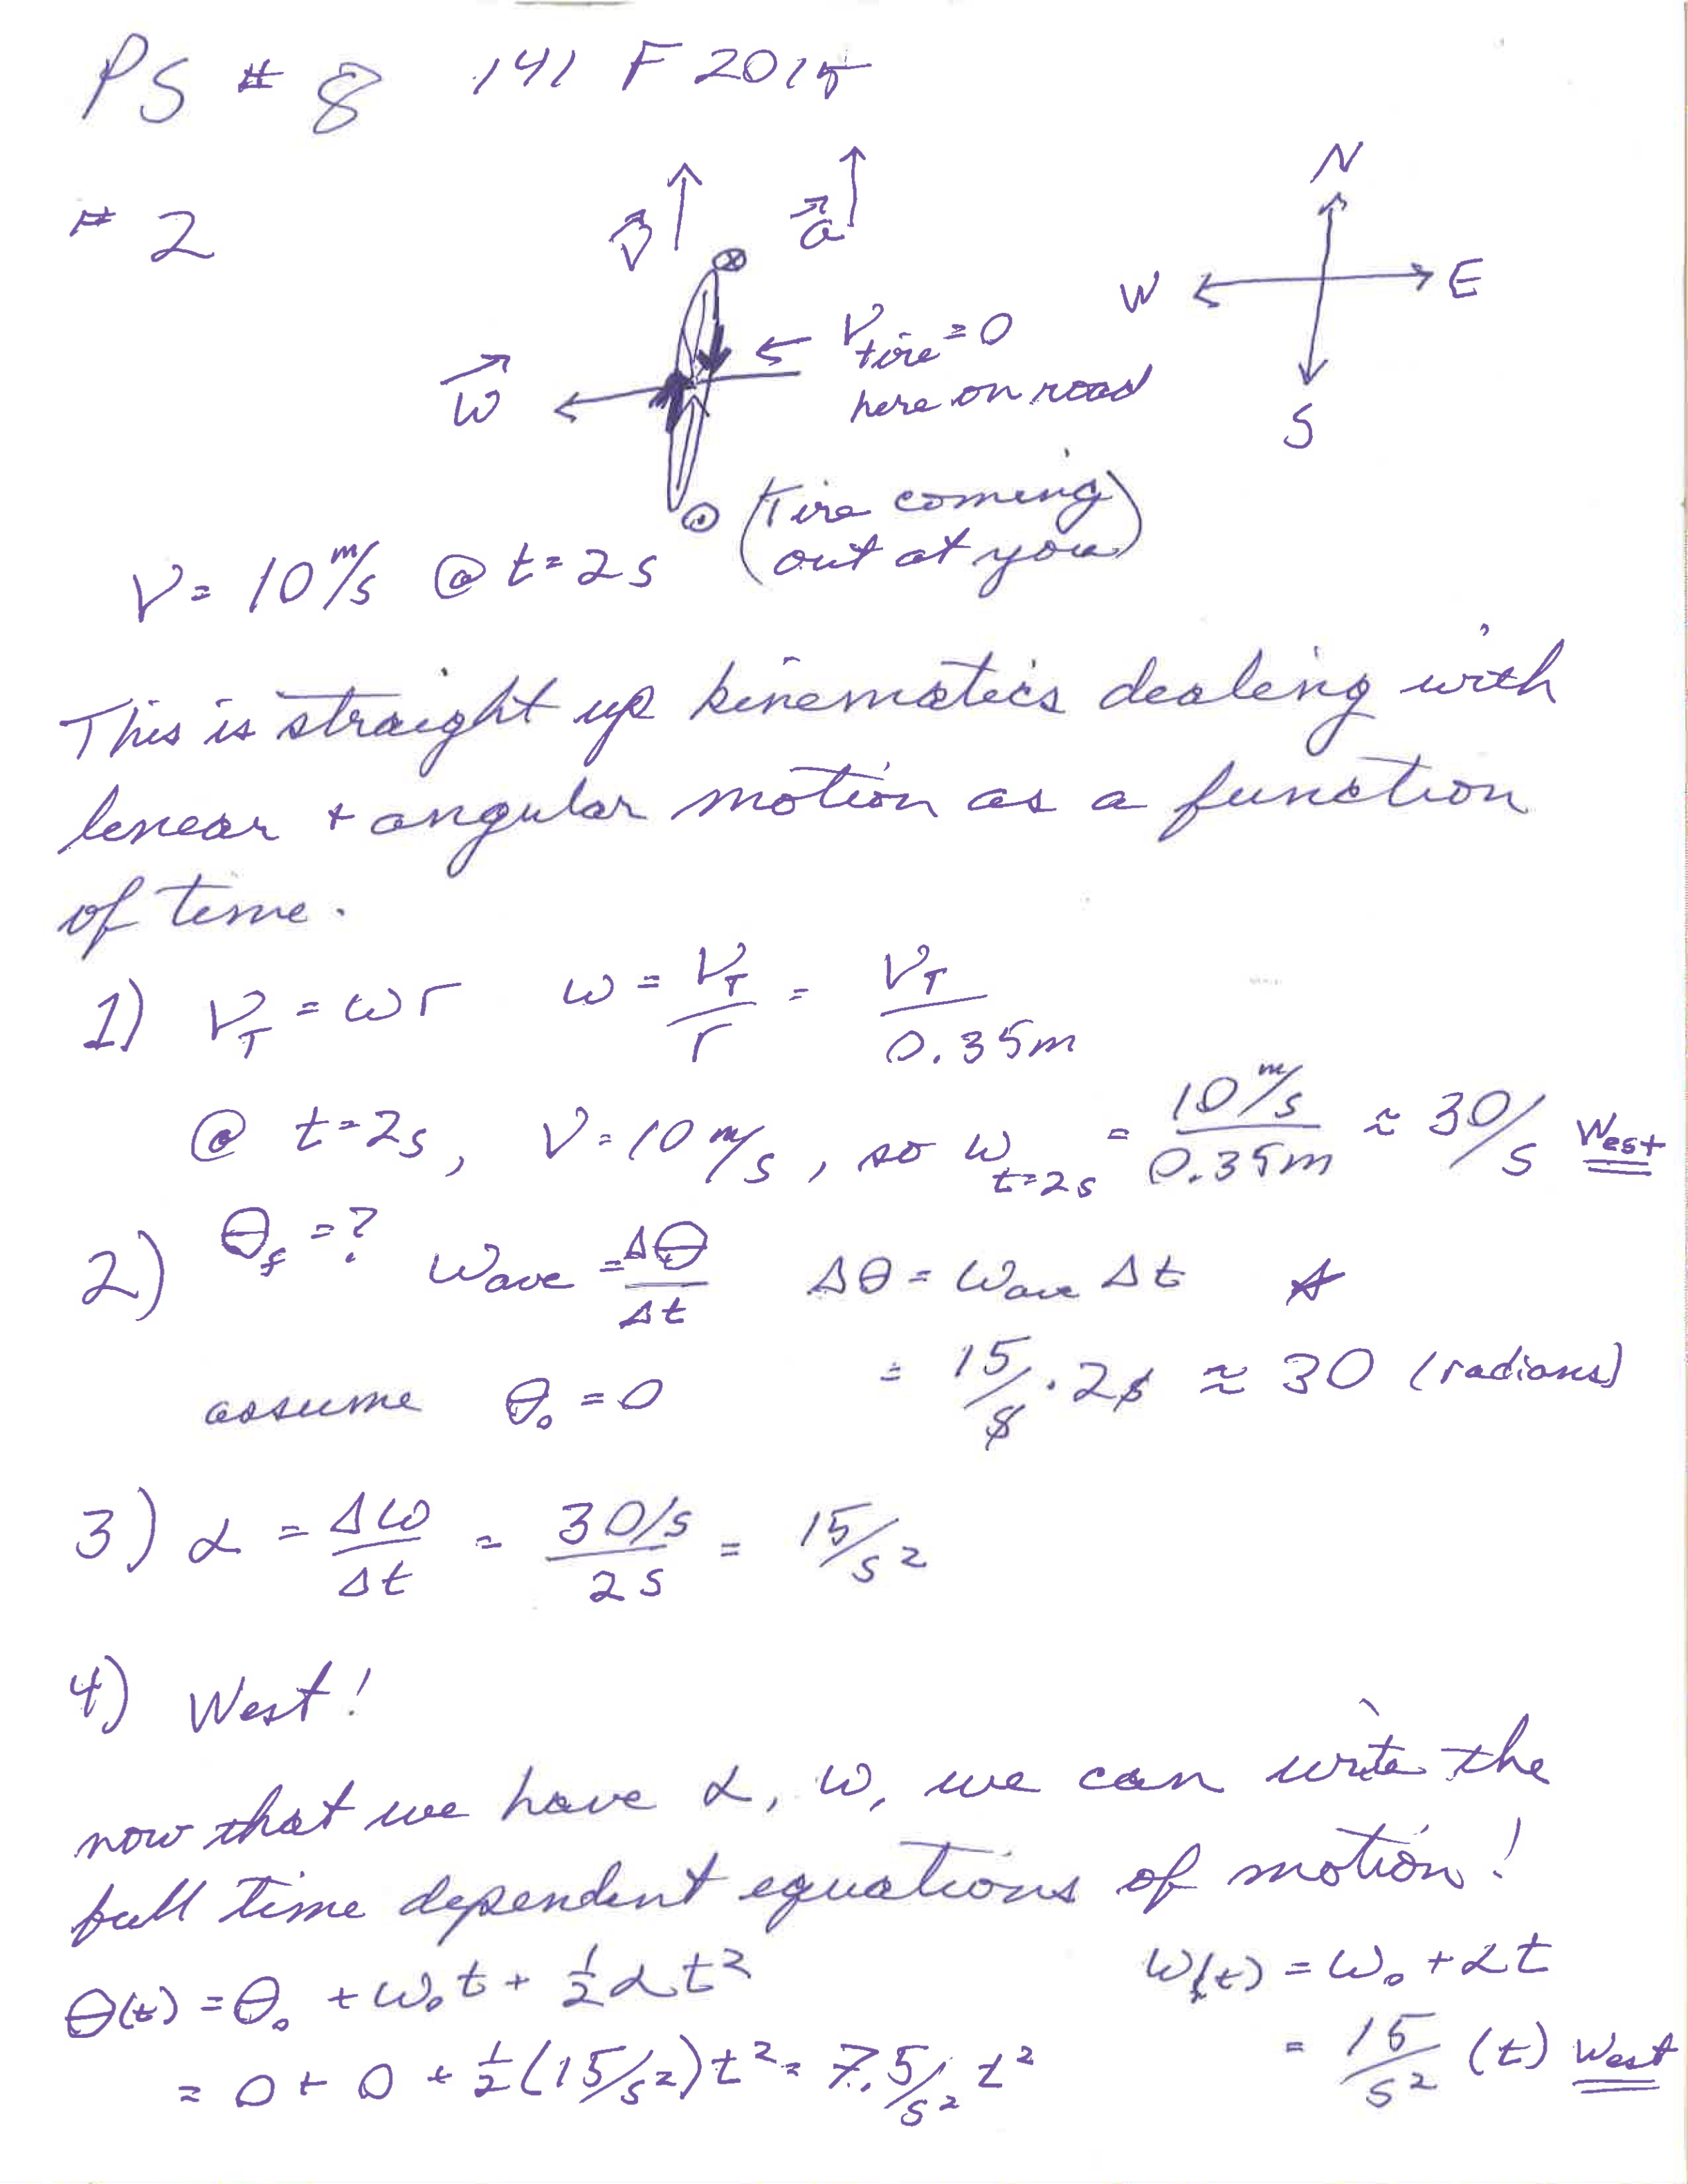 PS # 8 141 F 2015
# 2
v⃗ a⃗
N
W E
S
ω⃗
V_tire = 0
here on road
(tire coming
out at you)
V = 10 m/s @ t = 2s
This is straight up kinematics dealing with
linear + angular motion as a function
of time.
1) V_T = ωr ω = V_T/r = V_T/0.35m
@ t=2s, V = 10 m/s, so ω_t=2s = 10 m/s / 0.35m ≈ 30/s West
2) θ_f = ? ω_ave = Δθ/Δt Δθ = ω_ave Δt
assume θ₀ = 0 = 15/s · 2s ≈ 30 (radians)
3) α = Δω/Δt = 30/s / 2s = 15/s²
4) West!
now that we have α, ω, we can write the
full time dependent equations of motion!
θ(t) = θ₀ + ω₀t + ½αt² ω(t) = ω₀ + αt
= 0 + 0 + ½(15/s²)t² = 7.5/s² t² = 15/s² (t) West